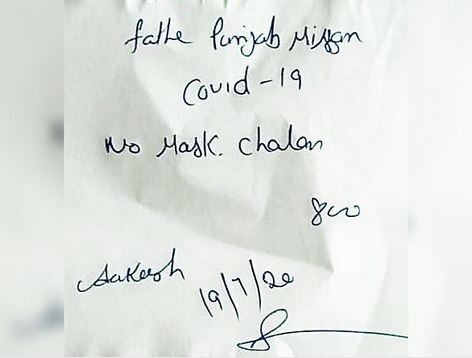 fathe Punjab Mission
Covid-19
No Mask. Chalan
800
Aakash
19/7/20